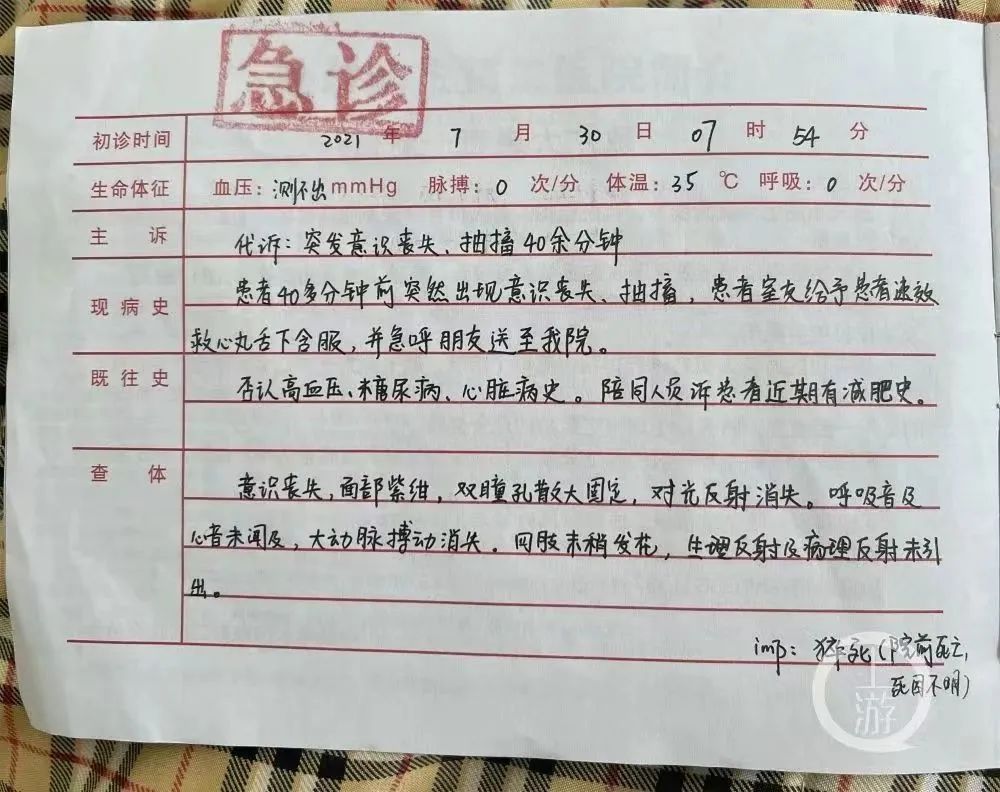 急诊
初诊时间 2021 年 7 月 30 日 07 时 54 分
生命体征 血压：测不出 mmHg 脉搏：0 次/分 体温：35 ℃ 呼吸：0 次/分
主诉 代诉：突发意识丧失、抽搐40余分钟
患者40多分钟前突然出现意识丧失、抽搐，患者室友给予患者速效
现病史 救心丸舌下含服，并急呼朋友送至我院。
既往史 否认高血压、糖尿病、心脏病史。陪同人员诉患者近期有减肥史。
查体 意识丧失，面部紫绀，双瞳孔散大固定，对光反射消失。呼吸音及
心音未闻及，大动脉搏动消失。四肢末梢发花，生理反射及病理反射未引
出。
imp：猝死（院前死亡，
死因不明）
上游